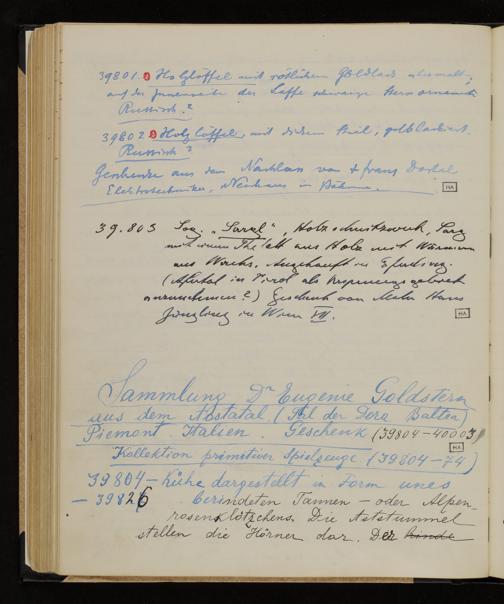 39801. Holzlöffel mit rötlichem Goldlack übermalt,
auf der Innenseite der Laffe schwarze Sternornamente
Russisch?
39802 Holzlöffel, mit dickem Stiel, goldlackiert.
Russisch?
Geschenke aus dem Nachlass von + Franz
Elektrotechniker, Neuhaus in Böhmen.
HA
39.803 Sog. "Sargl", Holzschnitzwerk, Sarg
mit einem Skelett aus Holz mit Würmern
aus Wachs. Angekauft in
(Ahrntal in Tirol als
anzunehmen?) Geschenk von Maler Hans
Jüngling in Wien VII.
HA
Sammlung Dr Eugenie Goldstern
aus dem Aostatal (Tal der Dora Baltea)
Piemont, Italien. Geschenk (39804-40003)
HA
Kollektion primitiver Spielzeuge (39804-74)
39804- Kühe dargestellt in Form eines
- 39826 berindeten Tannen- oder Alpen-
rosenklötzchens. Die Aststummel
stellen die Hörner dar. Der Rinde